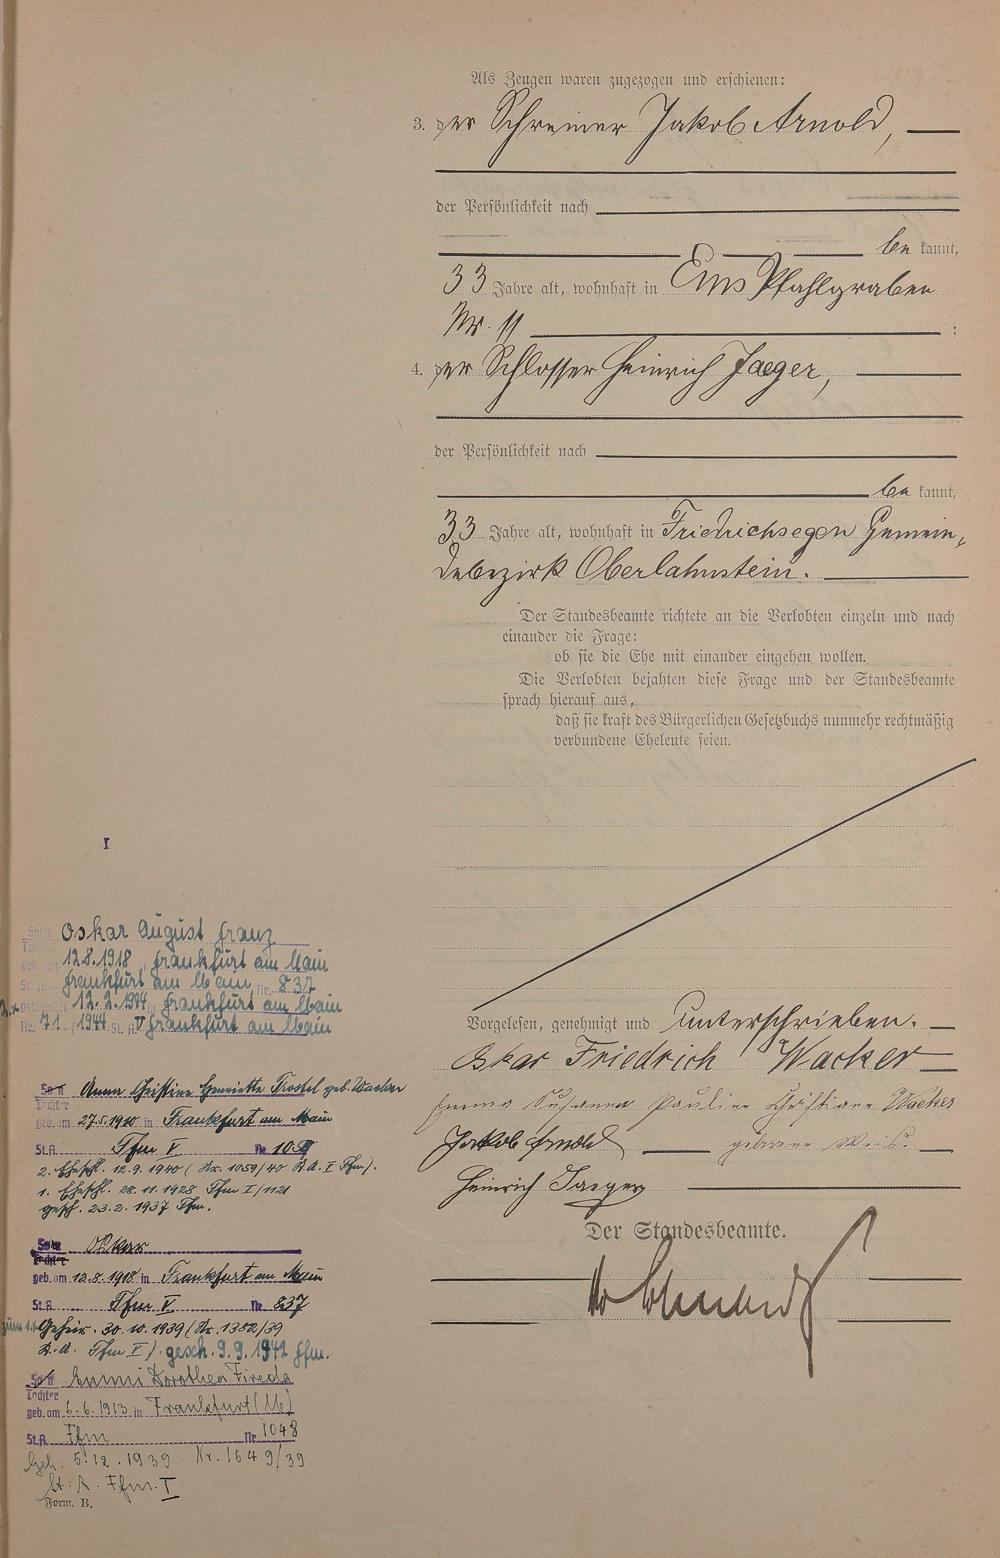 Als Zeugen waren zugezogen und erschienen:
3. der Schreiner Jakob Arnold,
der Persönlichkeit nach
be kannt,
33 Jahre alt, wohnhaft in Ems Pfahlgraben
Nr. 11 ;
4. der Schlosser Heinrich Jaeger,
der Persönlichkeit nach
be kannt,
33 Jahre alt, wohnhaft in Friedrichsegen Gemein-
debezirk Oberlahnstein.
Der Standesbeamte richtete an die Verlobten einzeln und nach
einander die Frage:
ob sie die Ehe mit einander eingehen wollen.
Die Verlobten bejahten diese Frage und der Standesbeamte
sprach hierauf aus,
daß sie kraft des Bürgerlichen Gesetzbuchs nunmehr rechtmäßig
verbundene Eheleute seien.
Vorgelesen, genehmigt und unterschrieben.
Oskar Friedrich Wacker
Emma Susanna Pauline Christiane Wacker
Jakob Arnold geborene Weis.
Heinrich Jaeger
Der Standesbeamte.
I
Sohn Oskar August Franz
geb. am 12.8.1918 in Frankfurt am Main
Frankfurt am Main Nr. 837
2.x 12.2.1944 Frankfurt am Main
Nr. 71 1944 St.A. V Frankfurt am Main
Sohn Anna Christine Henriette Trostel geb. Wacker
Tochter
geb. am 27.5.1910 in Frankfurt am Main
St.A. Ffm V Nr.
2. Eheschl. 12.9.1940 (Nr. 1059/40 St.A. I Ffm).
1. Eheschl. 28.11.1928 Ffm I/1121
gesch. 23.2.1937 Ffm.
Sohn Oskar
Tochter
geb. am 12.8.1918 in Frankfurt am Main
St.A. Ffm V Nr. 837
zum 1.x Geheir. 30.10.1939 (Nr. 1382/39
St.A. Ffm I). gesch. 9.9.1942 Ffm.
Sohn Emmi Dorothea Frieda
Tochter
geb. am 6.6.1913 in Frankfurt (M)
St.A. Ffm Nr. 1048
Geh. 5.12.1939 Nr. 1649/39
St. A. Ffm. I
Form. B.